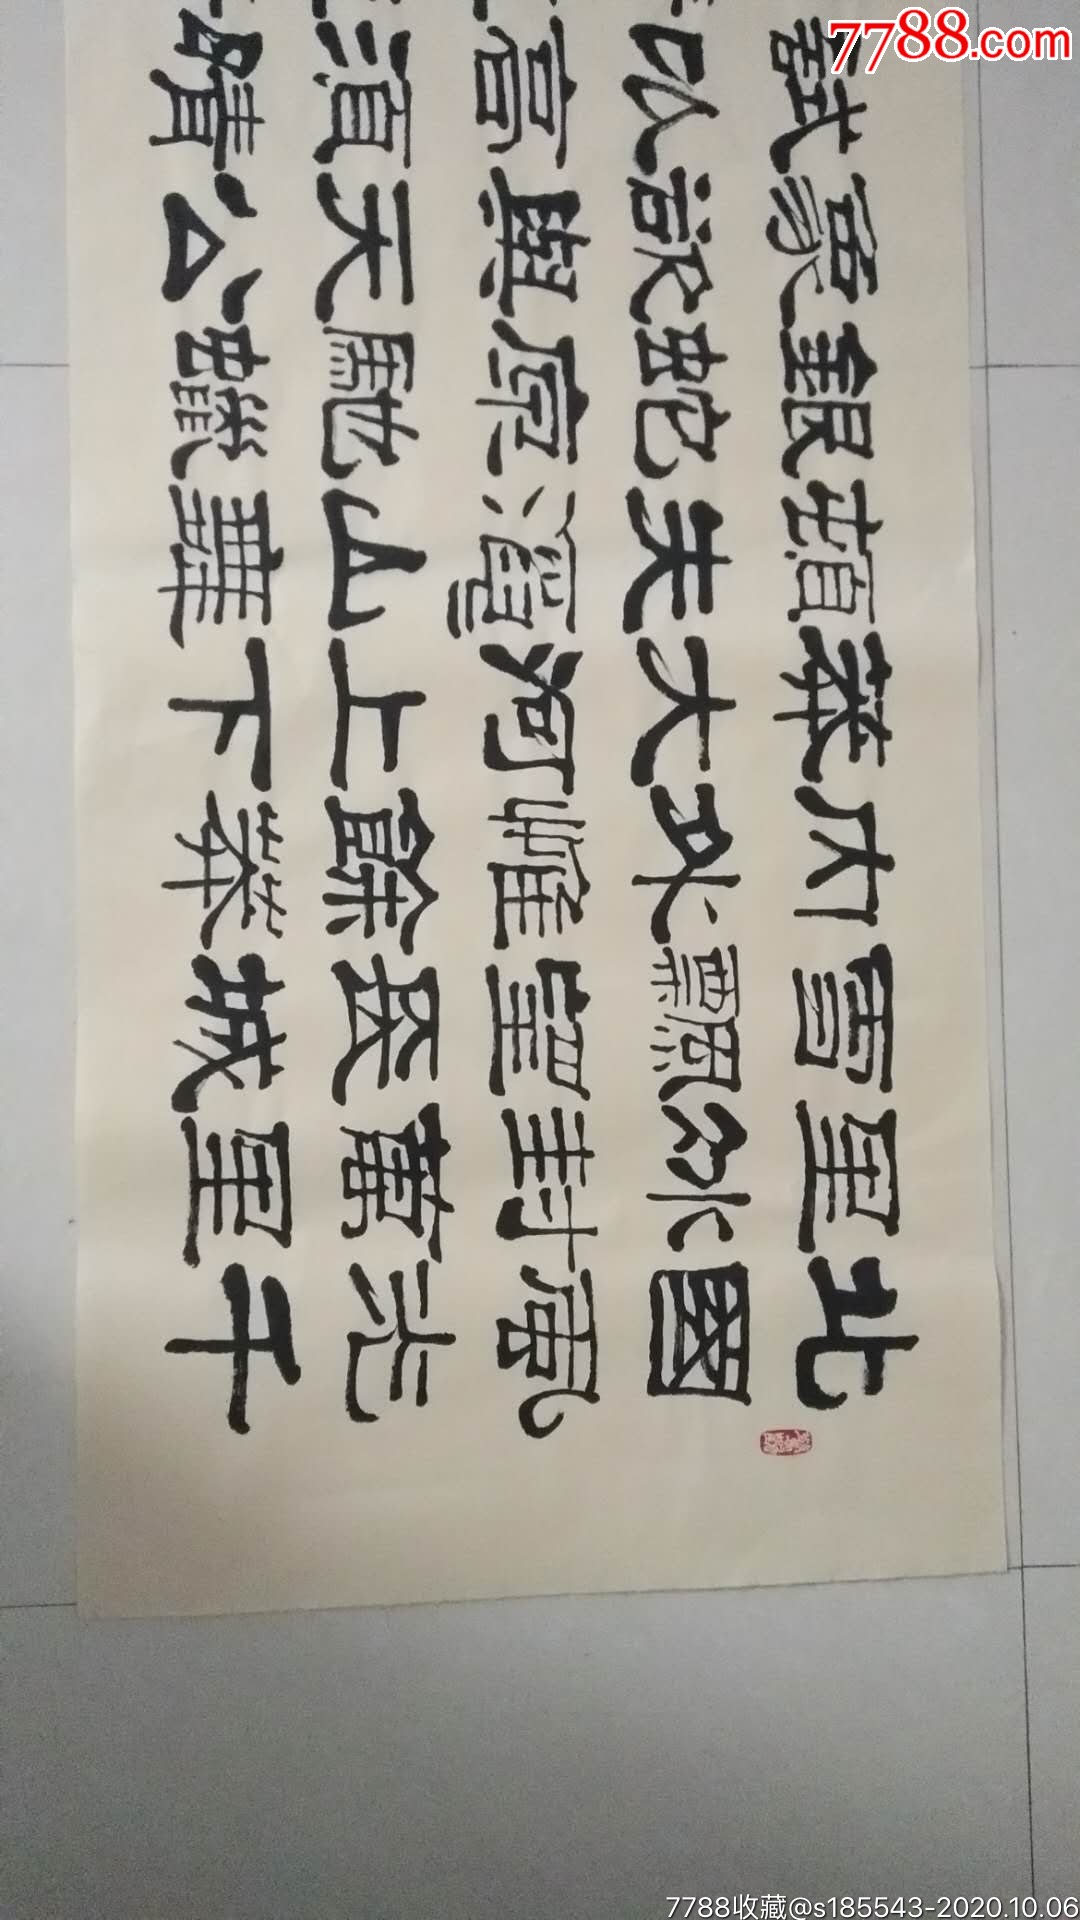 北國風光千
里冰封萬里
雪飄望長城
內外惟餘莽
莽大河上下
頓失滔〻山舞
銀蛇原馳蠟
象欲與天公
試比高須晴
7788.com
7788收藏@s185543-2020.10.06